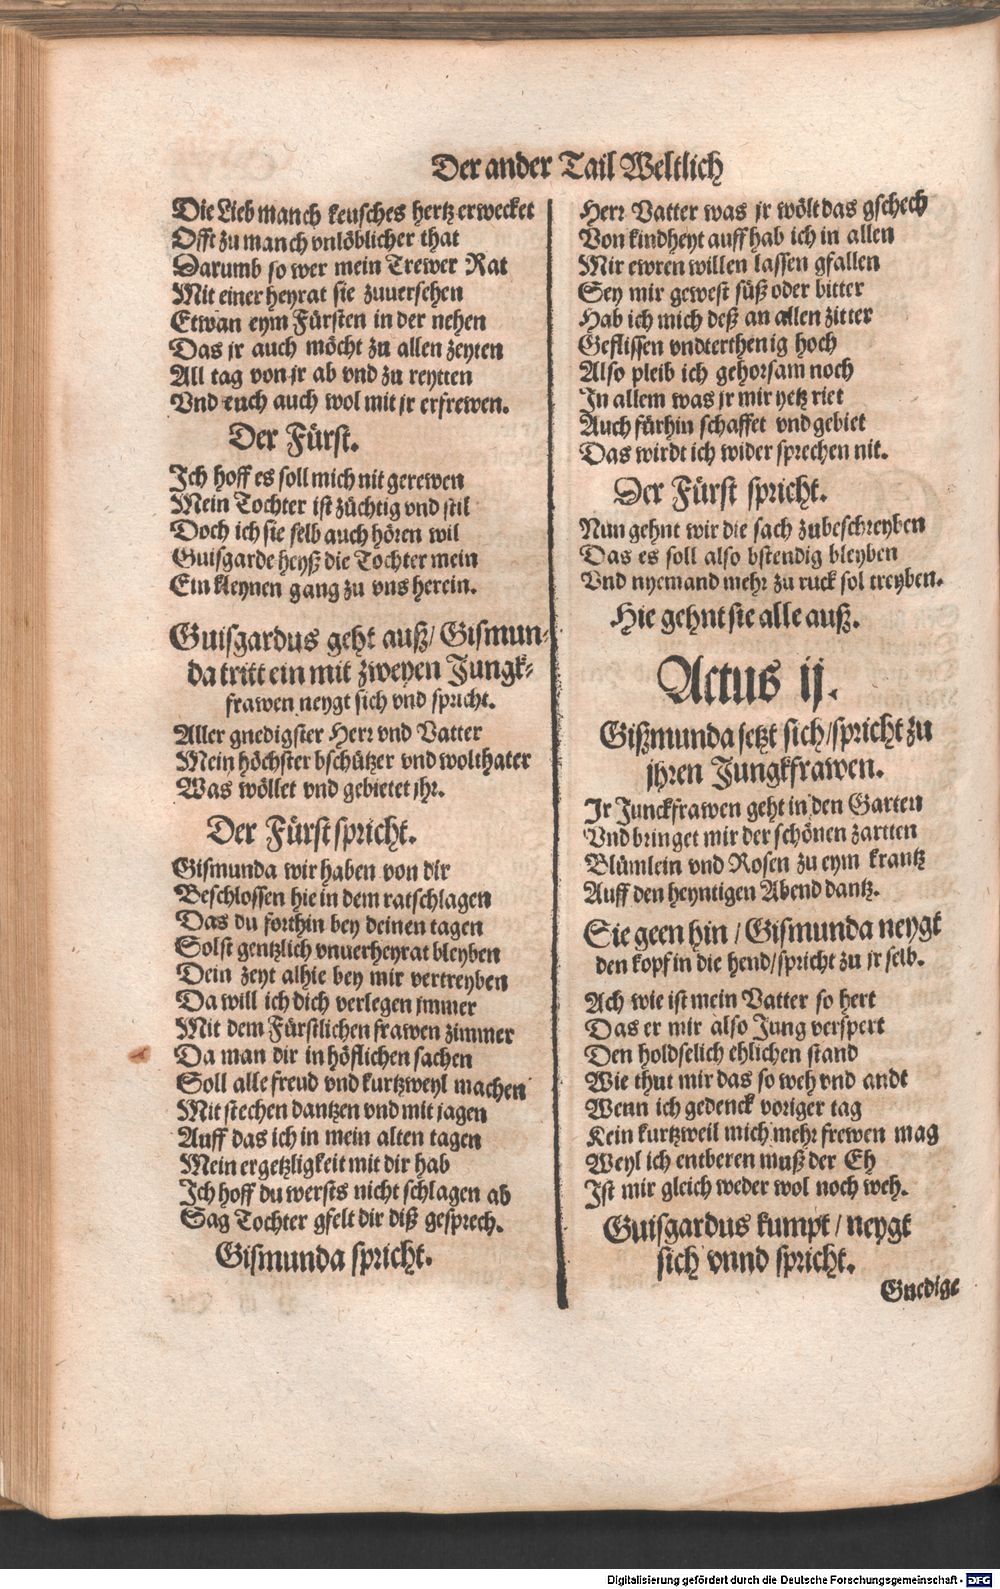 Der ander Tail Weltlich
Die Lieb manch keusches hertz erwecket
Offt zu manch vnlöblicher that
Darumb so wer mein Trewer Rat
Mit einer heyrat sie zuuersehen
Etwan eym Fürsten in der nehen
Das jr auch möcht zu allen zeyten
All tag von jr ab vnd zu reytten
Vnd euch auch wol mit jr erfrewen.
Der Fürst.
Ich hoff es soll mich nit gerewen
Mein Tochter ist züchtig vnd stil
Doch ich sie selb auch hören wil
Guisgarde heyß die Tochter mein
Ein kleynen gang zu vns herein.
Guisgardus geht auß/ Gismun-
da tritt ein mit zweyen Jungk-
frawen neygt sich vnd spricht.
Aller gnedigster Herr vnd Vatter
Mein höchster bschützer vnd wolthater
Was wöllet vnd gebietet jhr.
Der Fürst spricht.
Gismunda wir haben von dir
Beschlossen hie in dem ratschlagen
Das du forthin bey deinen tagen
Solst gentzlich vnuerheyrat bleyben
Dein zeyt alhie bey mir vertreyben
Da will ich dich verlegen jmmer
Mit dem Fürstlichen frawen zimmer
Da man dir in höflichen sachen
Soll alle freud vnd kurtzweyl machen
Mit stechen dantzen vnd mit jagen
Auff das ich in mein alten tagen
Mein ergetzligkeit mit dir hab
Ich hoff du wersts nicht schlagen ab
Sag Tochter gfelt dir diß gesprech.
Gismunda spricht.
Herr Vatter was jr wölt das gschech
Von kindheyt auff hab ich in allen
Mir ewren willen lassen gfallen
Sey mir gewest süß oder bitter
Hab ich mich deß an allen zitter
Geflissen vndterthenig hoch
Also pleib ich gehorsam noch
In allem was jr mir yetz riet
Auch fürhin schaffet vnd gebiet
Das wirdt ich wider sprechen nit.
Der Fürst spricht.
Nun gehnt wir die sach zubeschreyben
Das es soll also bstendig bleyben
Vnd nyemand mehr zu ruck sol treyben.
Hie gehnt sie alle auß.
Actus ij.
Gißmunda setzt sich/spricht zu
jhren Jungkfrawen.
Ir Junckfrawen geht in den Garten
Vnd bringet mir der schönen zartten
Blümlein vnd Rosen zu eym krantz
Auff den heyntigen Abend dantz.
Sie geen hin / Gismunda neygt
den kopf in die hend/spricht zu jr selb.
Ach wie ist mein Vatter so hert
Das er mir also Jung verspert
Den holdselich ehlichen stand
Wie thut mir das so weh vnd andt
Wenn ich gedenck voriger tag
Kein kurtzweil mich mehr frewen mag
Weyl ich entberen muß der Eh
Ist mir gleich weder wol noch weh.
Guisgardus kumpt / neygt
sich vnnd spricht.
Gnedige
Digitalisierung gefördert durch die Deutsche Forschungsgemeinschaft - DFG